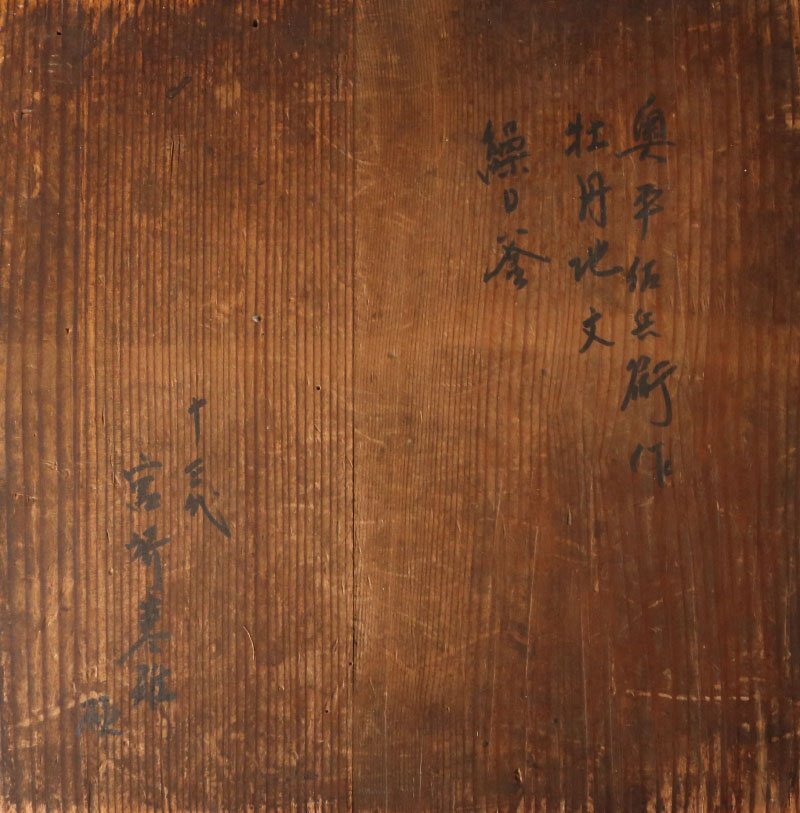 奥平佐兵衛作
牡丹地文
繰口釜
十三代
宮崎寒雉